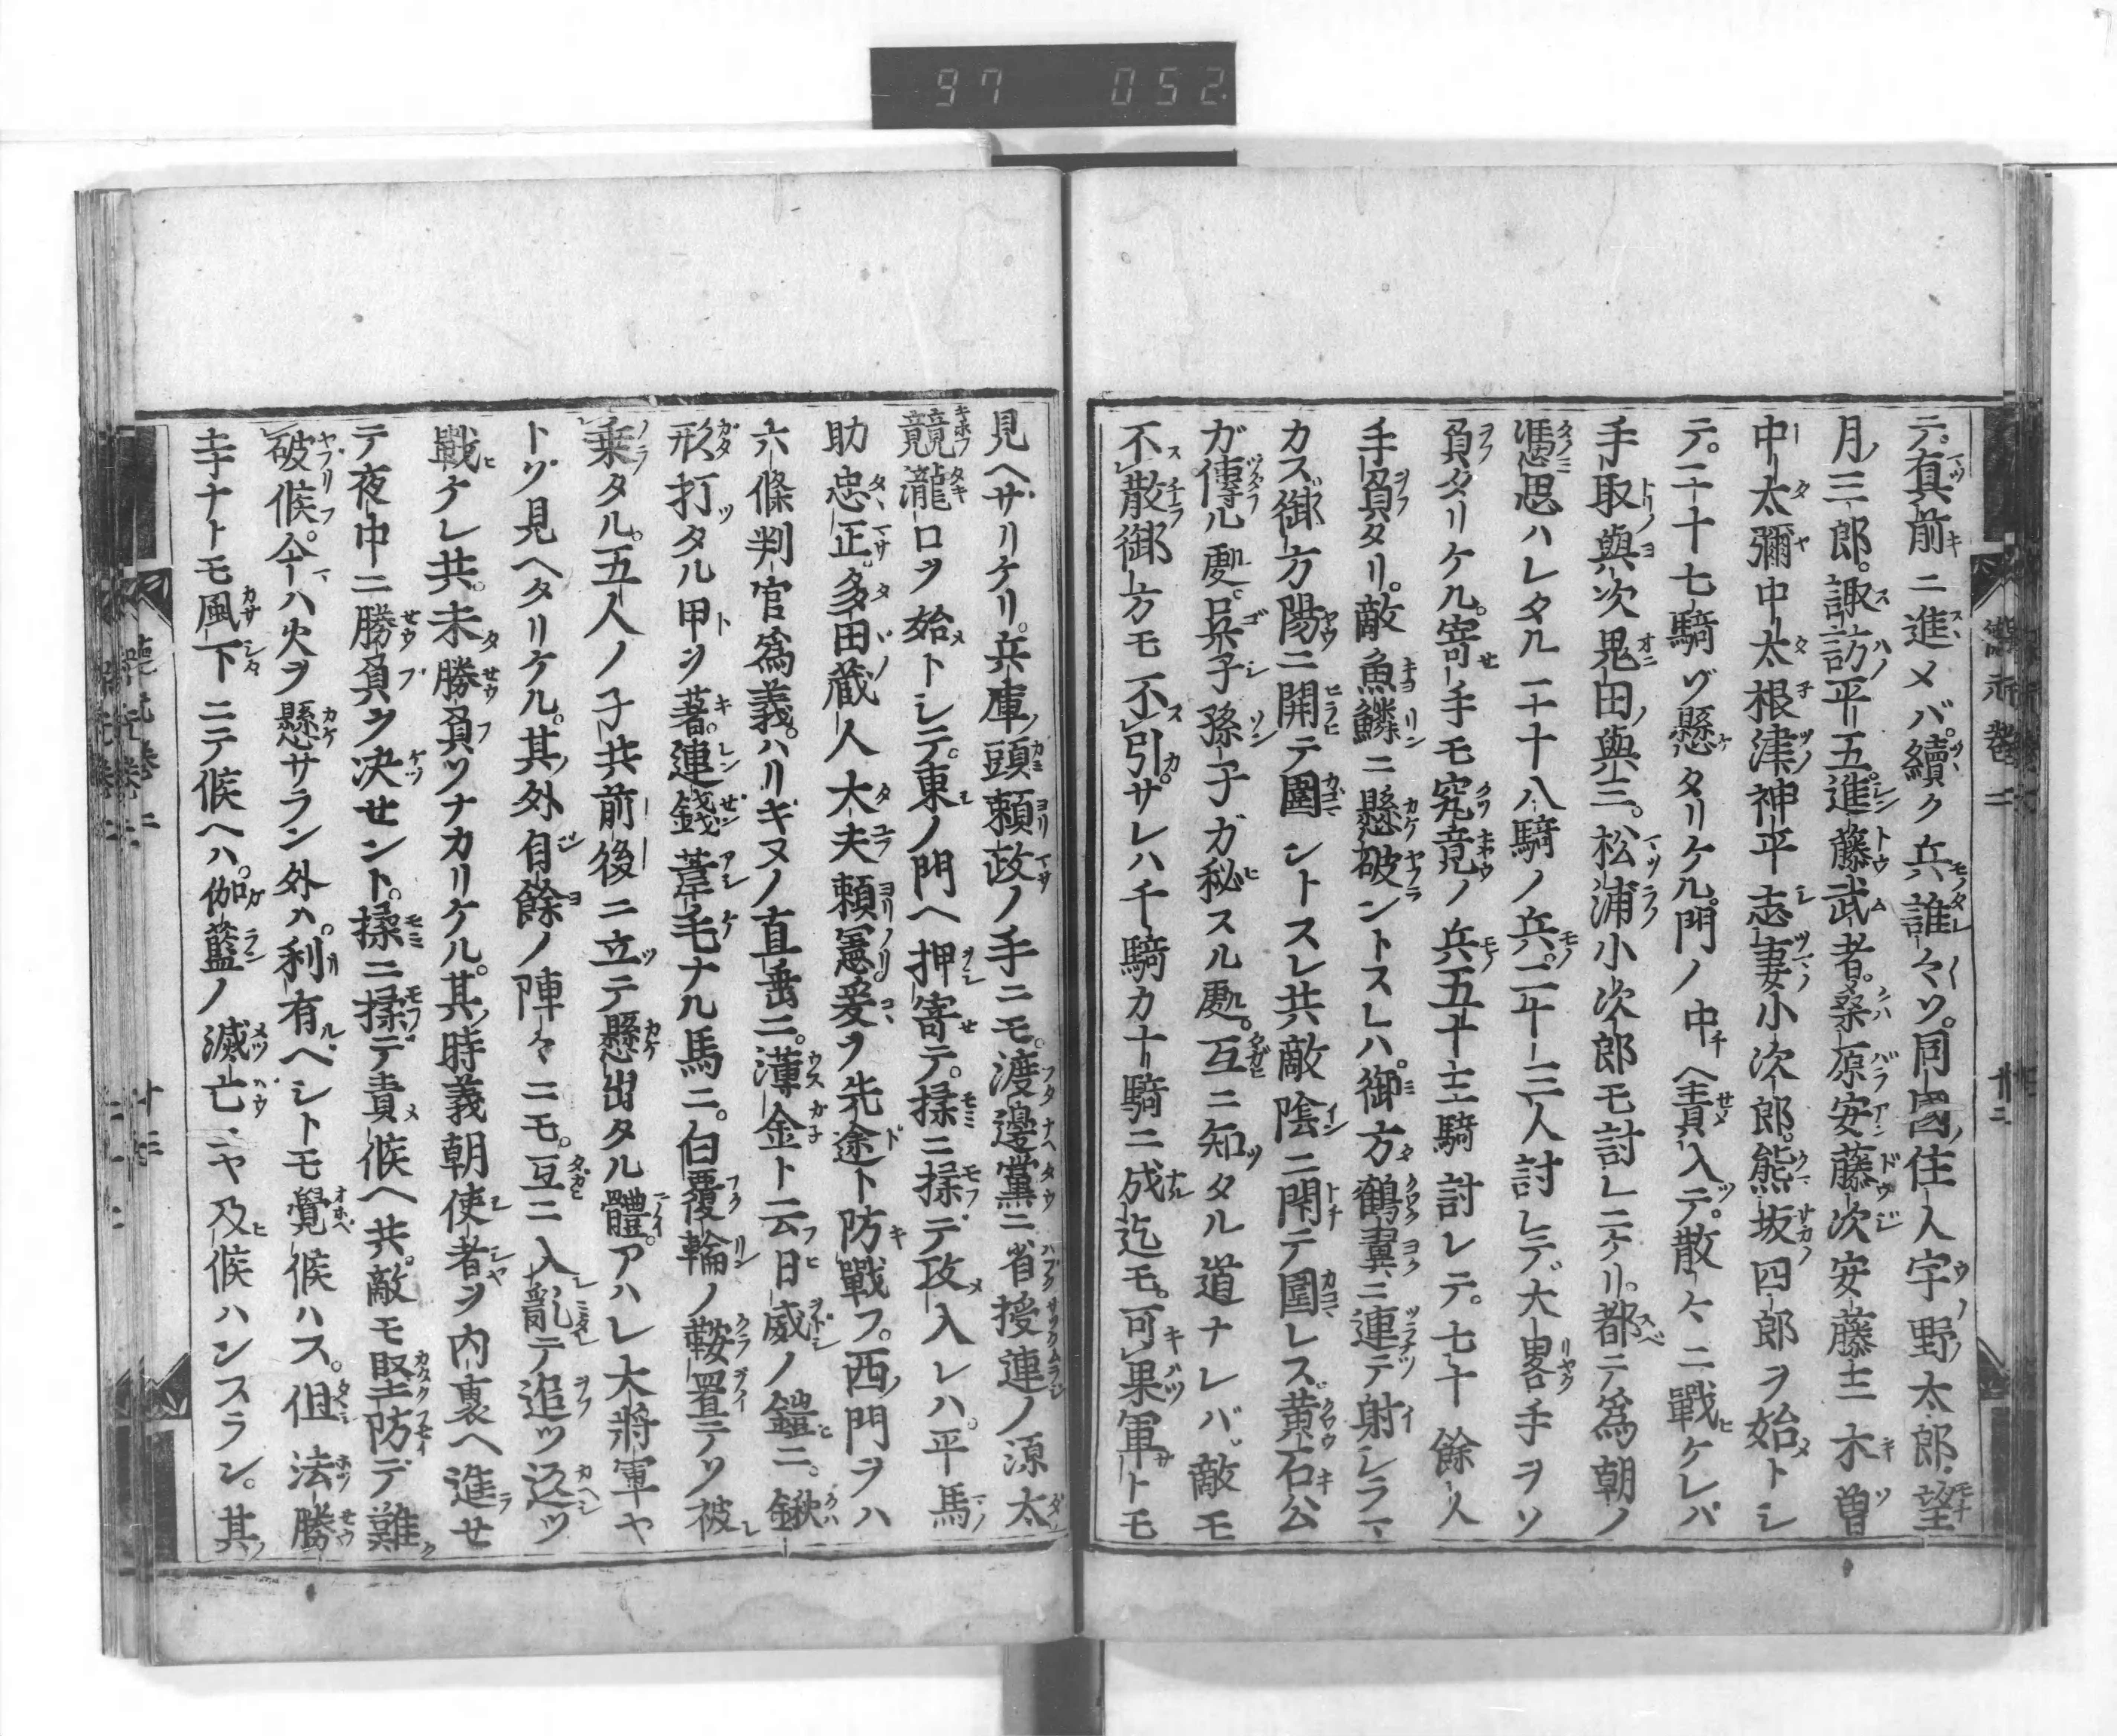 97 052
テ。真前ニ進メバ。續ク兵誰々ソ。同國住人宇野太郎。望
月三郎。諏訪平五進藤武者。桑原安藤次安藤三木曽
中太彌中太根津神平志妻小次郎。熊坂四郎ヲ始トシ
テ。二十七騎ゾ懸タリケル。門ノ中ヘ責入テ。散々ニ戰ケレバ
手取與次鬼田與三。松浦小次郎モ討レニケリ。都テ爲朝ノ
憑思ハレタル二十八騎ノ兵。二十三人討レテ大畧手ヲソ
負タリケル。寄手モ究竟ノ兵五十三騎討レテ。七十餘人
手負タリ。敵魚鱗ニ懸破ントスレハ。御方鶴翼ニ連テ射シラマ
カス。御方陽ニ開テ圍ントスレ共敵陰ニ閇テ圍レス。黄石公
ガ傳ル處。呉子孫子ガ秘スル處。互ニ知タル道ナレバ敵モ
不散御方モ不引。サレハ千騎カ十騎ニ成迄モ。可果軍トモ
見ヘザリケリ。兵庫頭頼政ノ手ニモ。渡邊黨ニ省授連ノ源太
競瀧口ヲ始トシテ。東ノ門ヘ押寄テ。揉ニ揉デ攻入レハ。平馬
助忠正。多田蔵人大夫頼憲爰ヲ先途ト防戰フ。西門ヲハ
六條判官爲義。ハリキヌノ直垂ニ。薄金ト云日威ノ鎧ニ。鍬
形打タル甲ヲ著。連錢葦毛ナル馬ニ。白覆輪ノ鞍置テソ被
乘タル。五人ノ子共前後ニ立テ懸出タル體。アハレ大將軍ヤ
トゾ見ヘタリケル。其外自餘ノ陣々ニモ。互ニ入亂テ追ツ返ツ
戰ケレ共。未勝負ツナカリケル。其時義朝使者ヲ内裏ヘ進セ
テ夜中ニ勝負ヲ决セント。揉ニ揉デ責候ヘ共。敵モ堅防デ難
破候。今ハ火ヲ懸サラン外ハ。利有ベシトモ覺候ハス。但法勝
寺ナトモ風下ニテ候ヘハ。伽藍ノ滅亡ニヤ及候ハンスラン。其